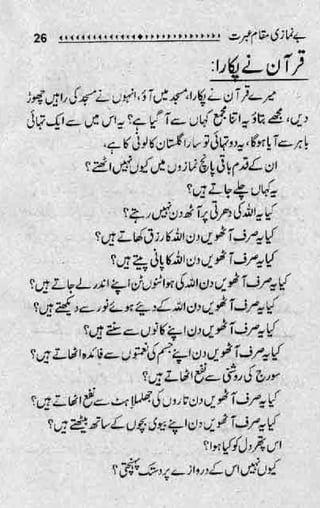 بے نمازی مقام عبرت 26
قرآن نے پکارا:
میرے قرآن نے پکارا، مسجد میں آؤ، انہوں نے مسجد کی راہیں چھوڑ
دیں، مجھے بتاؤ یہ اتنا مجمع کہاں سے آ گیا ہے؟ یہ اس میں سے ایک تہائی
باہر سے آیا ہوگا، یہ دو تہائی تو سارا گلستان کالونی کا ہے،
ان کے قدم باقی پانچ نمازوں میں کیوں نہیں اٹھتے؟
یہ کہاں چلے جاتے ہیں؟
کیا یہ اللہ کی دھرتی پر آٹھ دن نہیں رہتے؟
کیا یہ صرف آٹھویں دن اللہ کا رزق کھاتے ہیں؟
کیا یہ صرف آٹھویں دن اللہ کا پانی پیتے ہیں؟
کیا یہ صرف آٹھویں دن اللہ کی ہوا اپنے اندر لے جاتے ہیں؟
کیا یہ صرف آٹھویں دن اللہ کے دیئے ہوئے نور سے دیکھتے ہیں؟
کیا یہ صرف آٹھویں دن اپنے کانوں سے سنتے ہیں؟
کیا یہ صرف آٹھویں دن اپنے جسم کی نعمتوں سے فائدہ اٹھاتے ہیں؟
سورج کی روشنی سے نفع اٹھاتے ہیں؟
کیا یہ صرف آٹھویں دن تاروں کی جھلملاہٹ سے نفع اٹھاتے ہیں؟
کیا یہ صرف آٹھویں دن اپنے بیوی بچوں کے ساتھ بیٹھتے ہیں؟
اس پتھر دل کو کیا ہوا؟
کیوں نہیں اس کے دروازے پر دستک پہنچتی؟